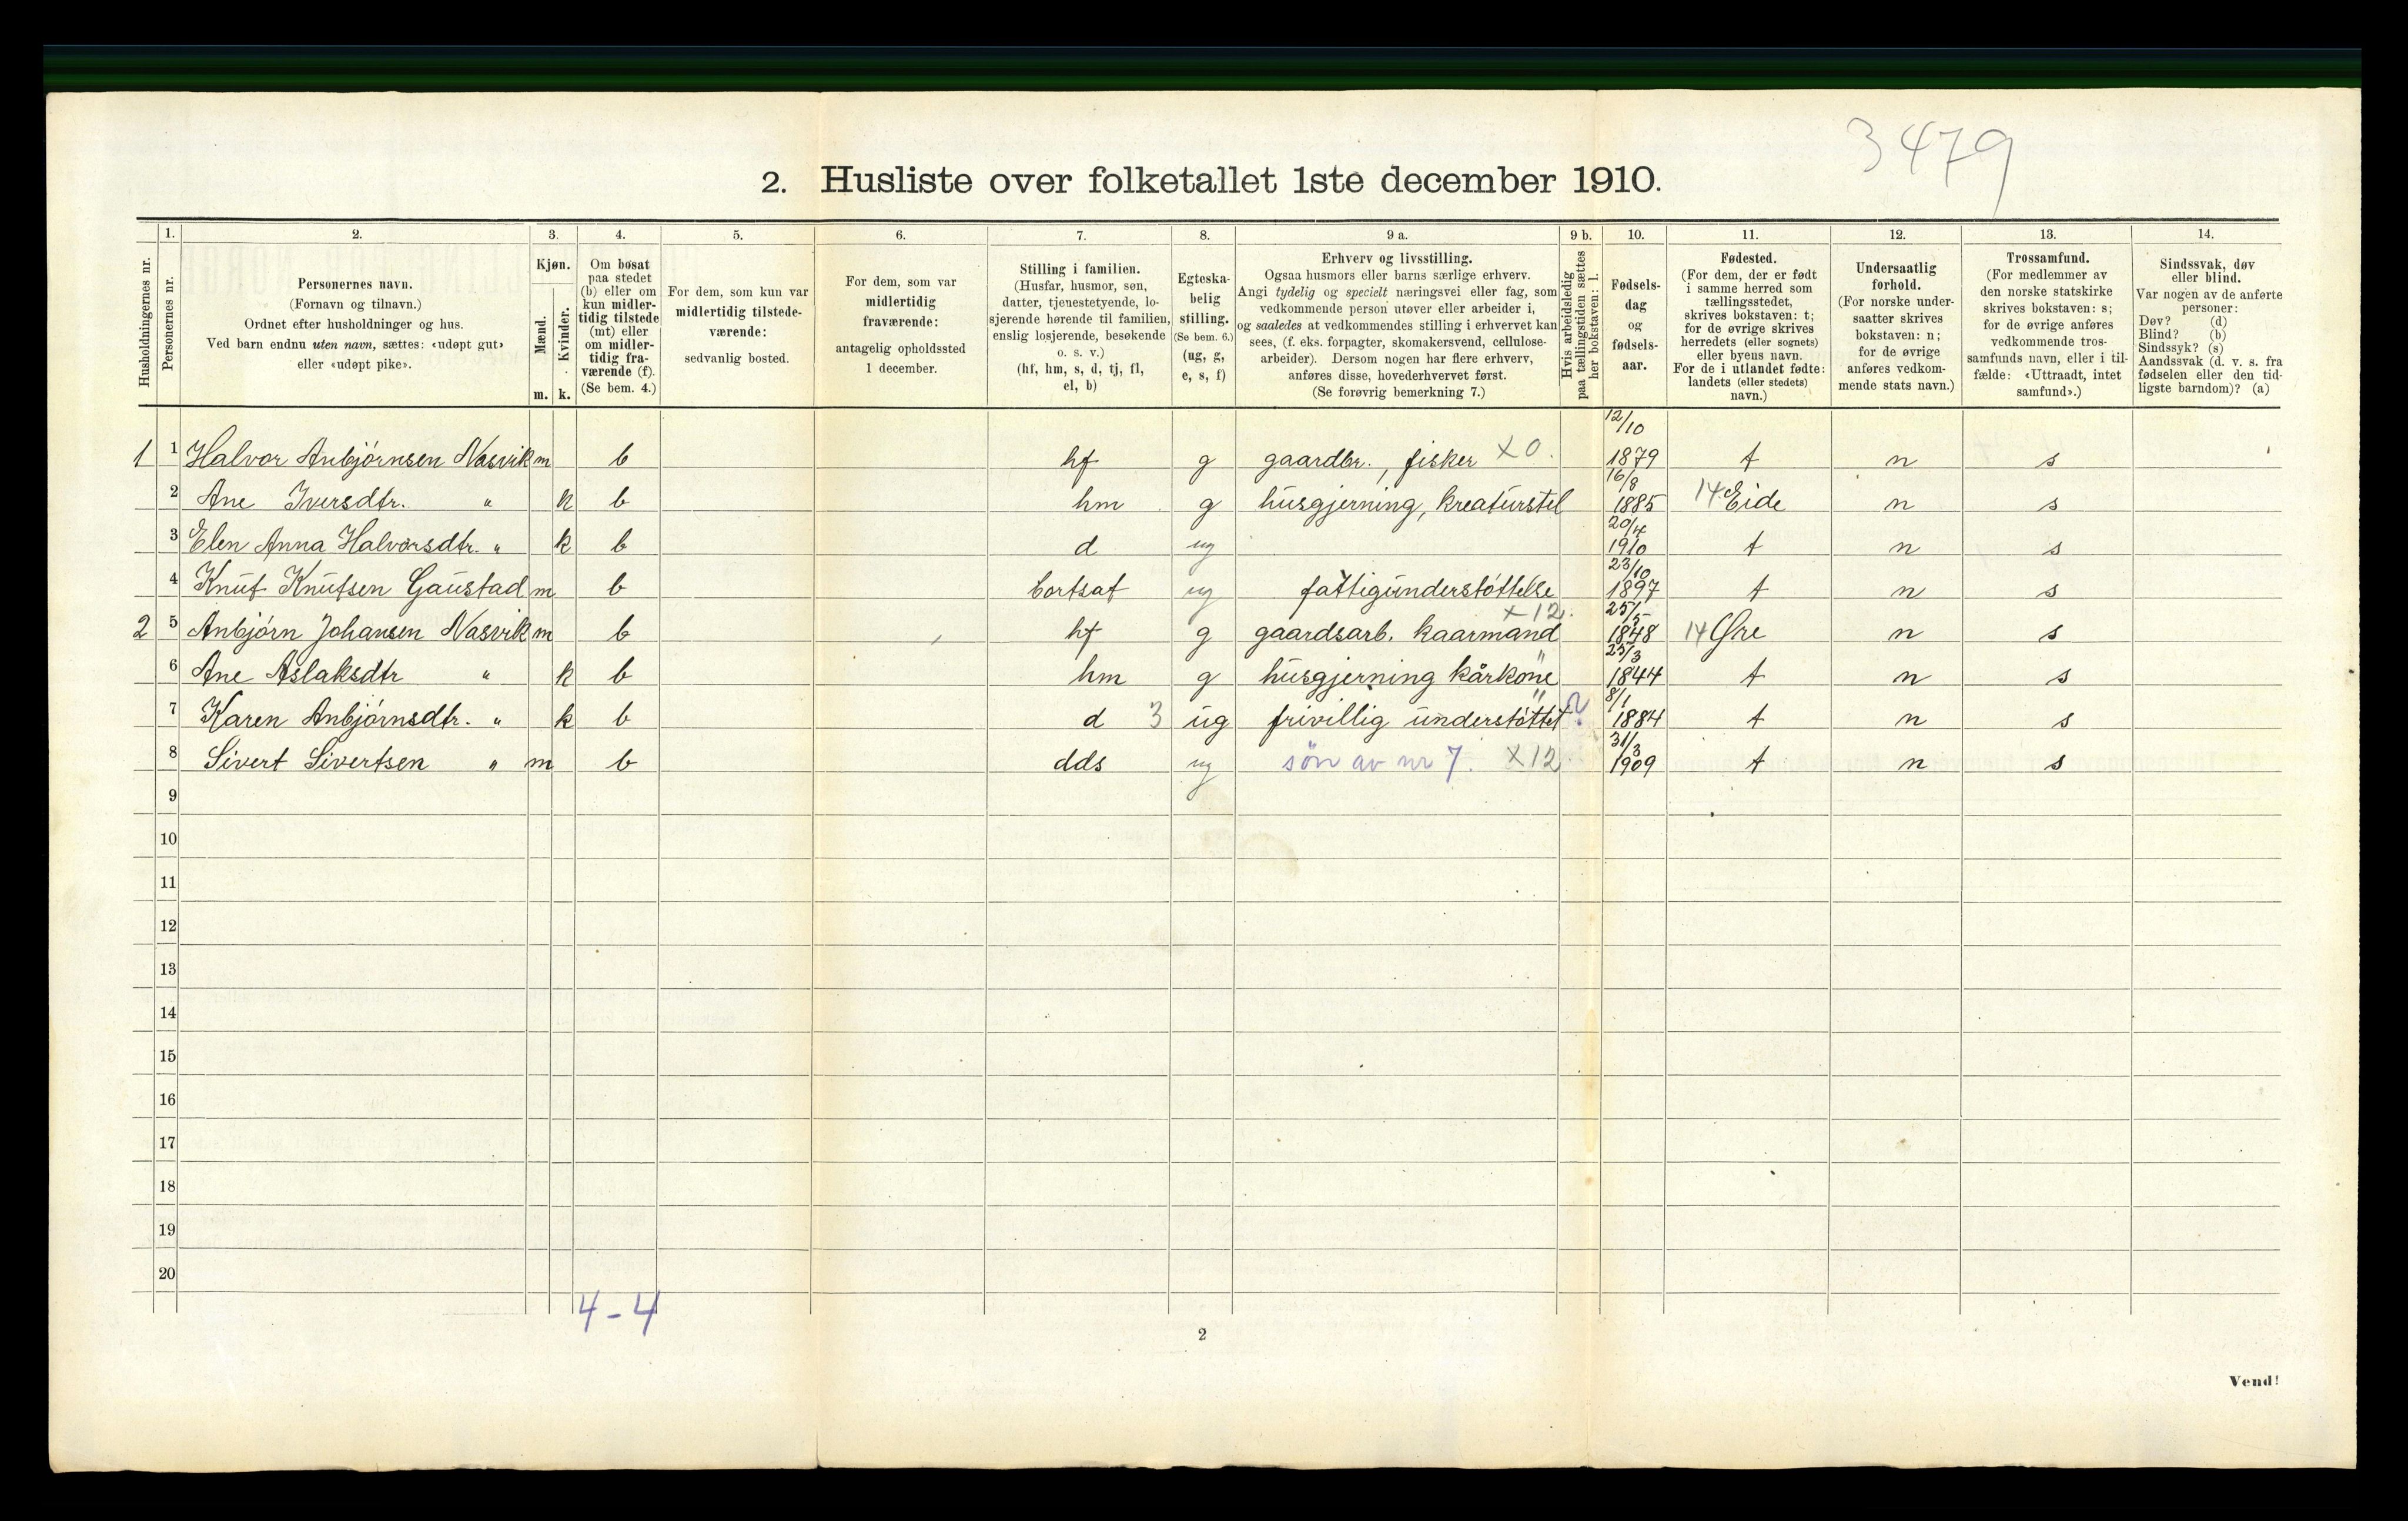 3479
2. Husliste over folketallet 1ste december 1910.
Husholdningernes nr.
1.
Personernes nr.
2.
Personernes navn.
(Fornavn og tilnavn.)
Ordnet efter husholdninger og hus.
Ved barn endnu uten navn, sættes: «udøpt gut»
eller «udøpt pike».
3.
Kjøn.
Mænd.
Kvinder.
m. k.
4.
Om bosat
paa stedet
(b) eller om
kun midler-
tidig tilstede
(mt) eller
om midler-
tidig fra-
værende (f).
(Se bem. 4.)
5.
For dem, som kun var
midlertidig tilstede-
værende:
sedvanlig bosted.
6.
For dem, som var
midlertidig
fraværende:
antagelig opholdssted
1 december.
7.
Stilling i familien.
(Husfar, husmor, søn,
datter, tjenestetyende, lo-
sjerende hørende til familien,
enslig losjerende, besøkende
o. s. v.)
(hf, hm, s, d, tj, fl,
el, b)
8.
Egteska-
belig
stilling.
(Se bem. 6.)
(ug, g,
e, s, f)
9 a.
Erhverv og livsstilling.
Ogsaa husmors eller barns særlige erhverv.
Angi tydelig og specielt næringsvei eller fag, som
vedkommende person utøver eller arbeider i,
og saaledes at vedkommendes stilling i erhvervet kan
sees, (f. eks. forpagter, skomakersvend, cellulose-
arbeider). Dersom nogen har flere erhverv,
anføres disse, hovederhvervet først.
(Se forøvrig bemerkning 7.)
9 b.
Hvis arbeidsledig
paa tællingstiden sættes
her bokstaven: l.
10.
Fødsels-
dag
og
fødsels-
aar.
11.
Fødested.
(For dem, der er født
i samme herred som
tællingsstedet,
skrives bokstaven: t;
for de øvrige skrives
herredets (eller sognets)
eller byens navn.
For de i utlandet fødte:
landets (eller stedets)
navn.)
12.
Undersaatlig
forhold.
(For norske under-
saatter skrives
bokstaven: n;
for de øvrige
anføres vedkom-
mende stats navn.)
13.
Trossamfund.
(For medlemmer av
den norske statskirke
skrives bokstaven: s;
for de øvrige anføres
vedkommende tros-
samfunds navn, eller i til-
fælde: «Uttraadt, intet
samfund».)
14.
Sindssvak, døv
eller blind.
Var nogen av de anførte
personer:
Døv? (d)
Blind? (b)
Sindssyk? (s)
Aandssvak (d. v. s. fra
fødselen eller den tid-
ligste barndom)? (a)
1 1 Halvor Anbjørnsen Nasvik m b hf g gaardbr., fisker X0. 12/10 1879 t n s
2 Ane Iversdtr. " k b hm g husgjerning, kreaturstel 16/8 1885 14 Eide n s
3 Elen Anna Halvorsdtr. " k b d ug 20/4 1910 t n s
4 Knut Knutsen Gaustad m b bortsat ug fattigunderstøttelse 23/10 1897 t n s
2 5 Anbjørn Johansen Nasvik m b hf g gaardsarb. kaarmand X12. 25/5 1848 14 Øre n s
6 Ane Aslaksdtr " k b hm g husgjerning kårkone " 25/3 1844 t n s
7 Karen Anbjørnsdtr. " k b d 3 ug frivillig understøttet " ? 8/1 1884 t n s
8 Sivert Sivertsen " m b dds ug søn av nr 7. X12 31/3 1909 t n s
9
10
11
12
13
14
15
16
17
18
19
20
4-4
2
Vend!